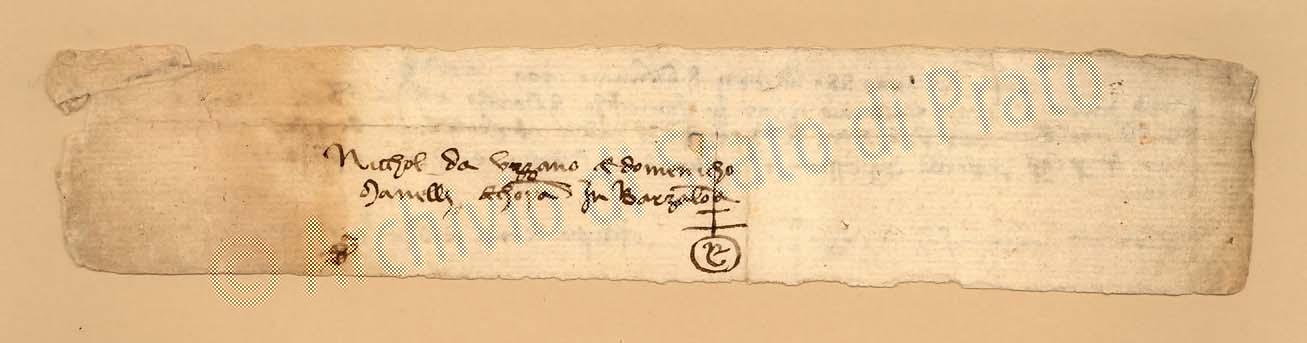 Nicchol da Uzzano e domenicho
Manelli e chopã In Barzalõa
© Archivio di Stato di Prato